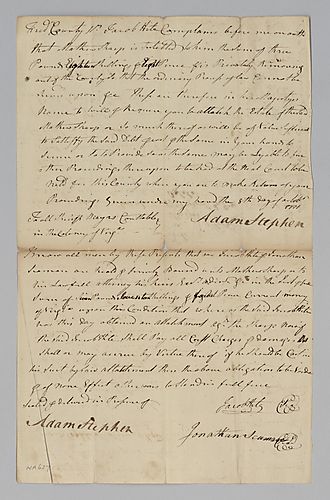 Fred County Ss Jacob Hite Complains before me on oath
that Mathew Sharp is Indebted to him the Sum of three
Pounds Eighteen Shillings & Eight Pence & is Privately Removing
out of the County so that the ordinary Process of Law Cannot be
Served upon
These are Therefore in his Majestys
Name to will & Require you to attach the Estate of the said
Mathew Sharp or so much thereof as will be of Value Sufficient
to Satisfy the said Debt & Cost & the Same in your hands to
Secure or so to Provide that the Same may be Lyable to further
Proceedings thereupon to be had at the Next Court to be
held for this County when you are to make Return of your
Proceedings Given under my hand the 8th day of
To all Sheriffs
Constables
in the Colony of
Adam Stephen
Know all men by these Presents that we Jacob Hite & Jonathan
Seaman are held & firmly Bound unto Mathew Sharp or to
his Lawfull attorney his heirs
in the Just &
Sum of Pounds Seventeen Shillings & Pence Current money
of Virga upon this Condition that whereas the said Jacob Hite
has this day obtained an attachment agt the Sharp Now if
the said Jacob Hite Shall Pay all Cost Charges & damages that
Shall or may accrue by Virtue thereof if he Should be Cast in
his Suit by said attachment then the above obligation to be Void
& of none Effect otherwise to Stand in full force
Sealed & delivered in Presence of
Jacob Hite
Adam Stephen
Jonathan Seaman